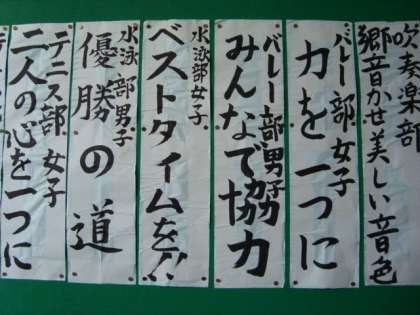 吹奏楽部
郷音かせ美しい音色
バレー部女子
力を一つに
バレー部男子
みんなで協力
水泳部女子
ベストタイムを!!
水泳部男子
優勝の道
テニス部女子
二人の心を一つに